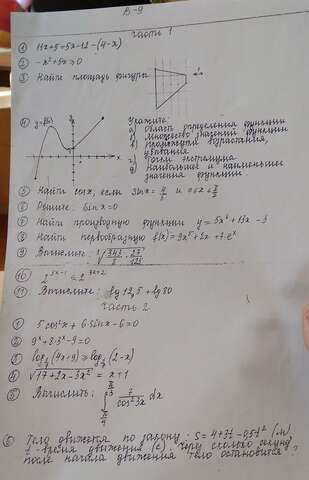 В-9
Часть 1
① 11x+5=5x-12-(4-x)
② -x²+5x≥0
③ Найти площадь фигуры
④ y=f(x) Укажите:
а) Область определения функции
б) множество значений функции
в) промежутки возрастания,
убывания
г) Точки экстремума
д) Наибольшее и наименьшее
значения функции.
⑤ Найти cosx, если sinx=4/5 и 0≤x≤π/2
⑥ Решите: sinx=0
⑦ Найти производную функции y=5x⁴+13x-3
⑧ Найти первообразную f(x)=9x⁵+2x+7-eˣ
⑨ Вычислите: ∛(343/8 · 27/125)
⑩ 2^(5x-1)=2^(3x+2)
⑪ Вычислите: lg 12,5 + lg 80
Часть 2
① 5cos²x+6sinx-6=0
② 9ˣ+8·3ˣ-9=0
③ (4x+9)≥ (2-x)
④ √(17+2x-3x²) = x+1
⑤ Вычислить: ∫ 7/cos²3x dx
⑥ Тело движется по закону: S=4+3t-0,5t² (м)
t-время движения (с). Через сколько секунд
после начала движения тело остановится?